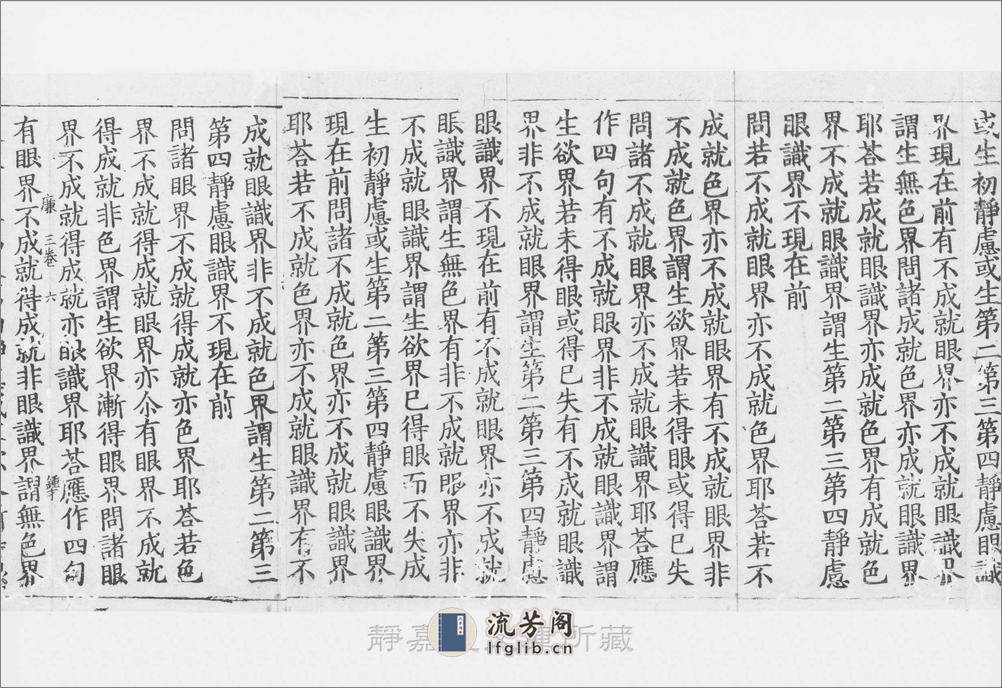 或生初靜慮或生第二第三第四靜慮眼識
界現在前有不成就眼界亦不成就眼識界
謂生無色界問諸成就色界亦成就眼識界
耶荅若成就眼識界亦成就色界有成就色
界不成就眼識界謂生第二第三第四靜慮
眼識界不現在前
問若不成就眼界亦不成就色界耶荅若不
成就色界亦不成就眼界有不成就眼界非
不成就色界謂生欲界若未得眼或得已失
問諸不成就眼界亦不成就眼識界耶荅應
作四句有不成就眼界非不成就眼識界謂
生欲界若未得眼或得已失有不成就眼識
界非不成就眼界謂生第二第三第四靜慮
眼識界不現在前有不成就眼界亦不成就
眼識界謂生無色界有非不成就眼界亦非
不成就眼識界謂生欲界已得眼而不失成
生初靜慮或生第二第三第四靜慮眼識界
現在前問諸不成就色界亦不成就眼識界
耶荅若不成就色界亦不成就眼識界有不
成就眼識界非不成就色界謂生第二第三
第四靜慮眼識界不現在前
問諸眼界不成就得成就亦色界耶荅若色
界不成就得成就眼界亦尒有眼界不成就
得成就非色界謂生欲界漸得眼界問諸眼
界不成就得成就亦眼識界耶荅應作四句
三卷 六
有眼界不成就得成就非眼識界謂無色界
靜嘉 所藏
流芳阁
lfglib.cn